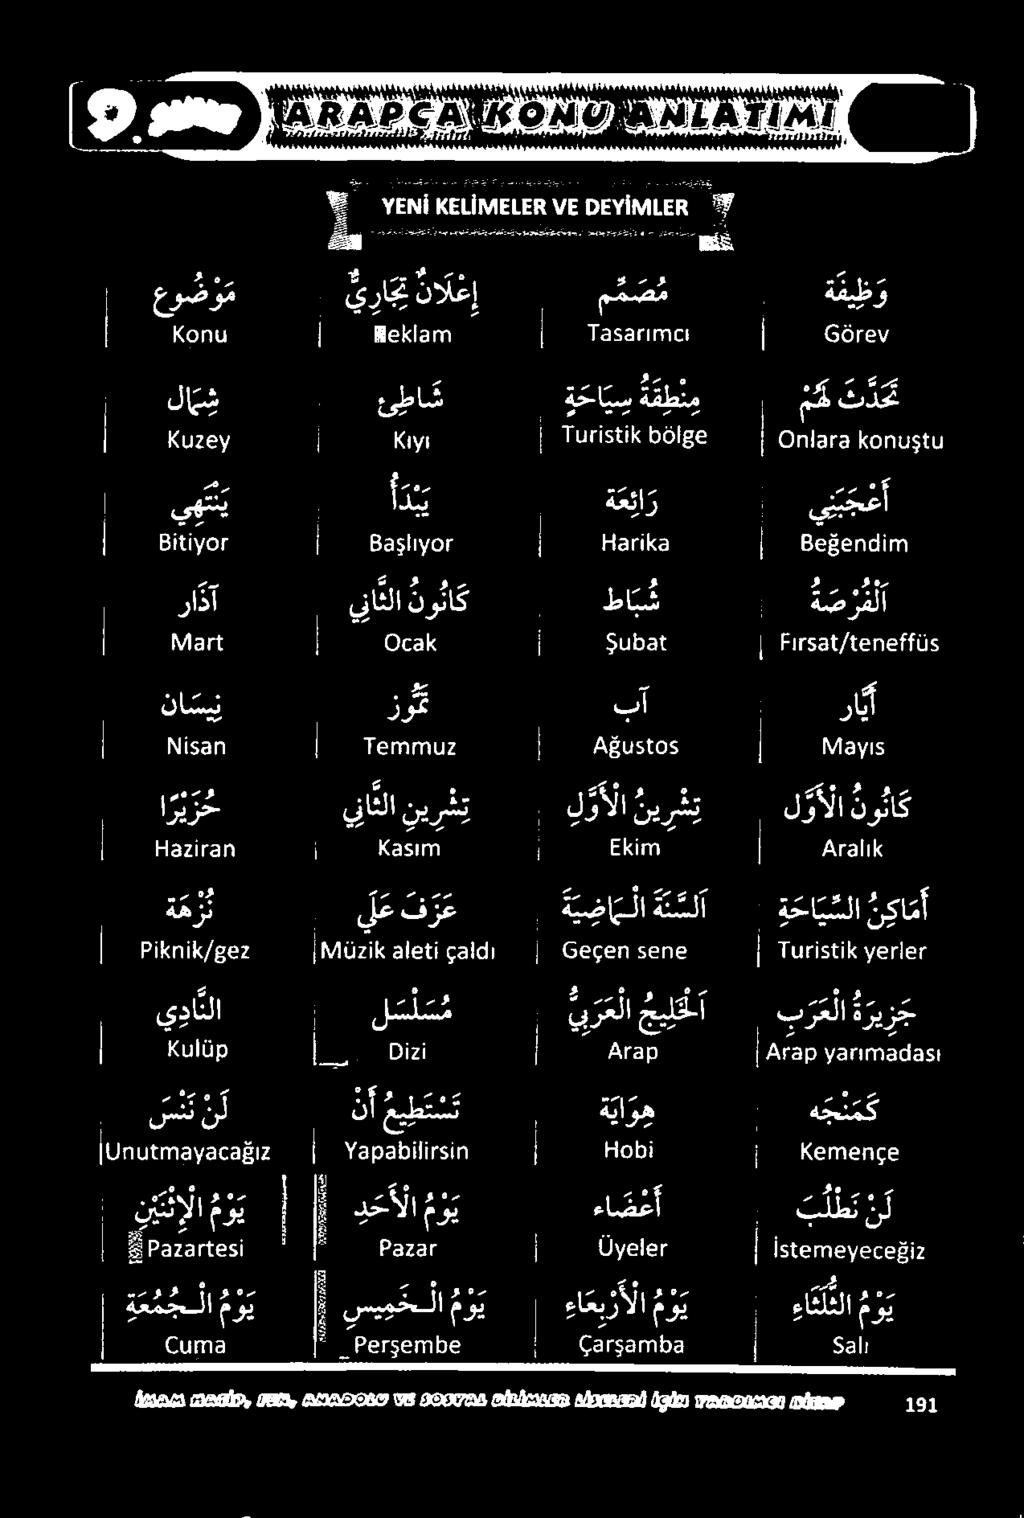 9. SINIF ARAPÇA KONU ANLATIMI
YENİ KELİMELER VE DEYİMLER
وَظِيفَة مُصَمِّم إِعْلَانٌ تِجَارِيٌّ مَوْضُوع
Konu Reklam Tasarımcı Görev
تَحَدَّثَ لَهُمْ مِنْطَقَةُ سِيَاحَةٍ شَاطِئ شِمَال
Kuzey Kıyı Turistik bölge Onlara konuştu
أَعْجَبَنِي رَائِعَة يَبْدَأُ يَنْتَهِي
Bitiyor Başlıyor Harika Beğendim
اَلْفُرْصَةُ شُبَاط كَانُونُ الثَّانِي آذَار
Mart Ocak Şubat Fırsat/teneffüs
أَيَّار آب تَمُّوز نِيسَان
Nisan Temmuz Ağustos Mayıs
كَانُونُ الْأَوَّل تِشْرِينُ الْأَوَّل تِشْرِينِ الثَّانِي حُزَيْرَا
Haziran Kasım Ekim Aralık
أَمَاكِنُ السِّيَاحَةِ اَلسَّنَةَ الْمَاضِيَةَ عَزَفَ عَلَي نُزْهَة
Piknik/gez Müzik aleti çaldı Geçen sene Turistik yerler
جَزِيرَةُ الْعَرَبِ اَلْخَلِيجُ الْعَرَبِيُّ مُسَلْسَل النَّادِي
Kulüp Dizi Arap Arap yarımadası
كَمَنْجَه هِوَايَة تَسْتَطِيعُ أَنْ لَنْ نَنْسَ
Unutmayacağız Yapabilirsin Hobi Kemençe
لَنْ نَطْلُبَ أَعْضَاء يَوْمُ الْأَحَدِ يَوْمُ الْإِثْنَيْنِ
Pazartesi Pazar Üyeler İstemeyeceğiz
يَوْمُ الثُّلَثَاءِ يَوْمُ الْأَرْبِعَاءِ يَوْمُ الْخَمِيسِ يَوْمُ الْجُمُعَةِ
Cuma Perşembe Çarşamba Salı
İMAM HATİP, FEN, ANADOLU VE SOSYAL BİLİMLER LİSELERİ İÇİN YARDIMCI KİTAP 191